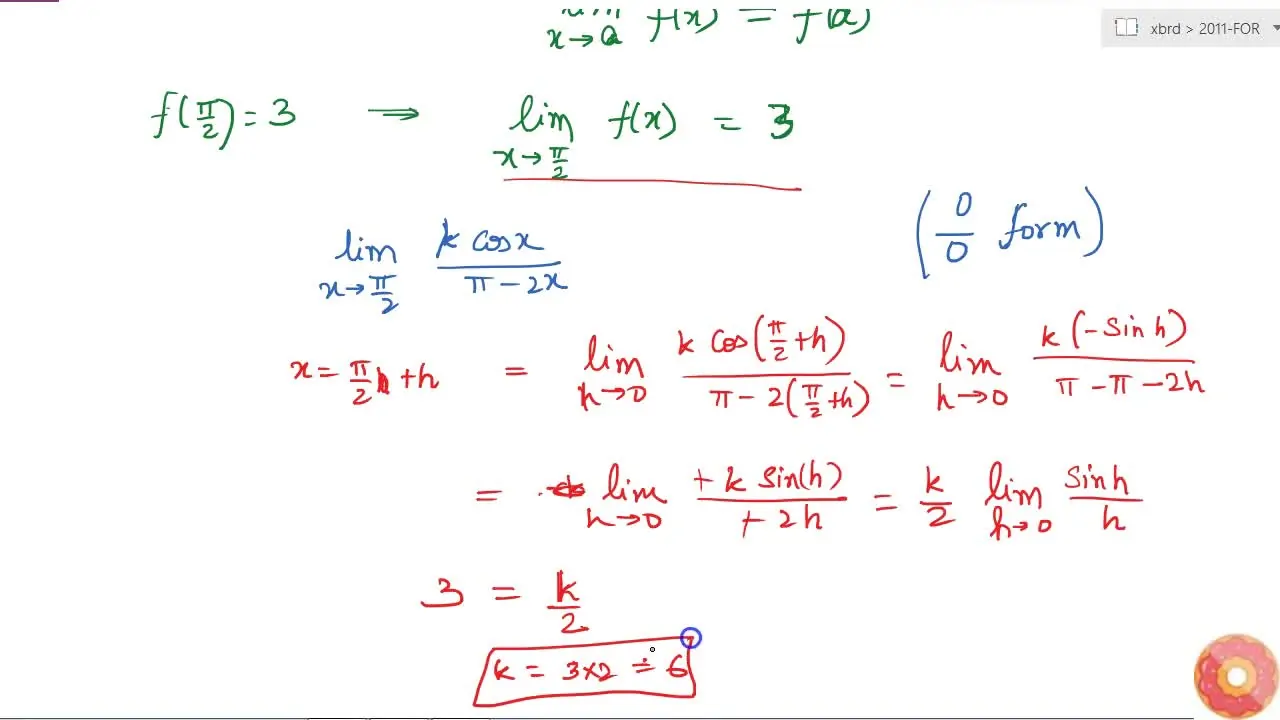 lim x→a f(x) = f(a)
xbrd > 2011-FOR
f(π/2) = 3 ⇒ lim x→π/2 f(x) = 3
lim x→π/2 k cosx / π - 2x (0/0 form)
x = π/2 + h = lim h→0 k cos(π/2 + h) / π - 2(π/2 + h) = lim h→0 k(-sin h) / π - π - 2h
= lim h→0 + k sin(h) / + 2h = k/2 lim h→0 sin h / h
3 = k/2
k = 3×2 = 6